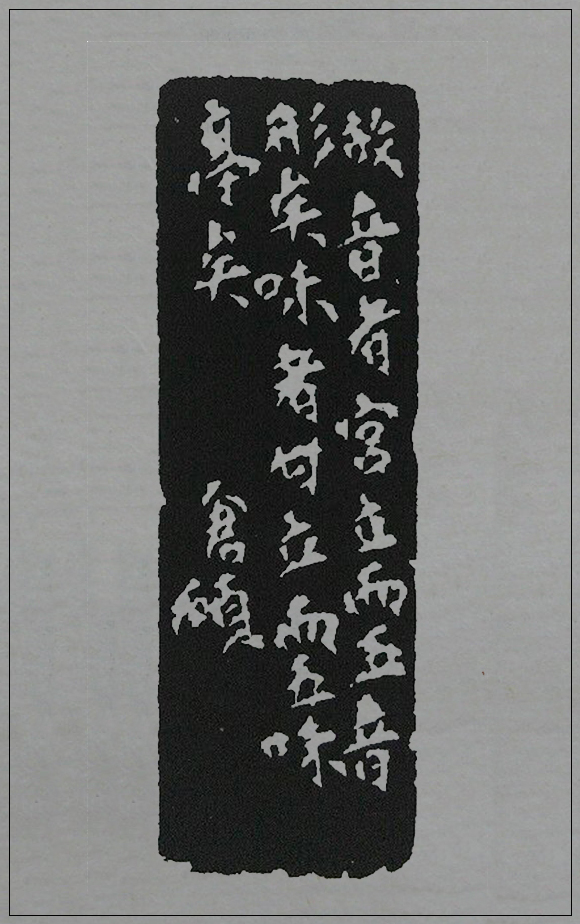 故音者宮立而五音
形矣味者甘立而五味
亭矣　倉碩